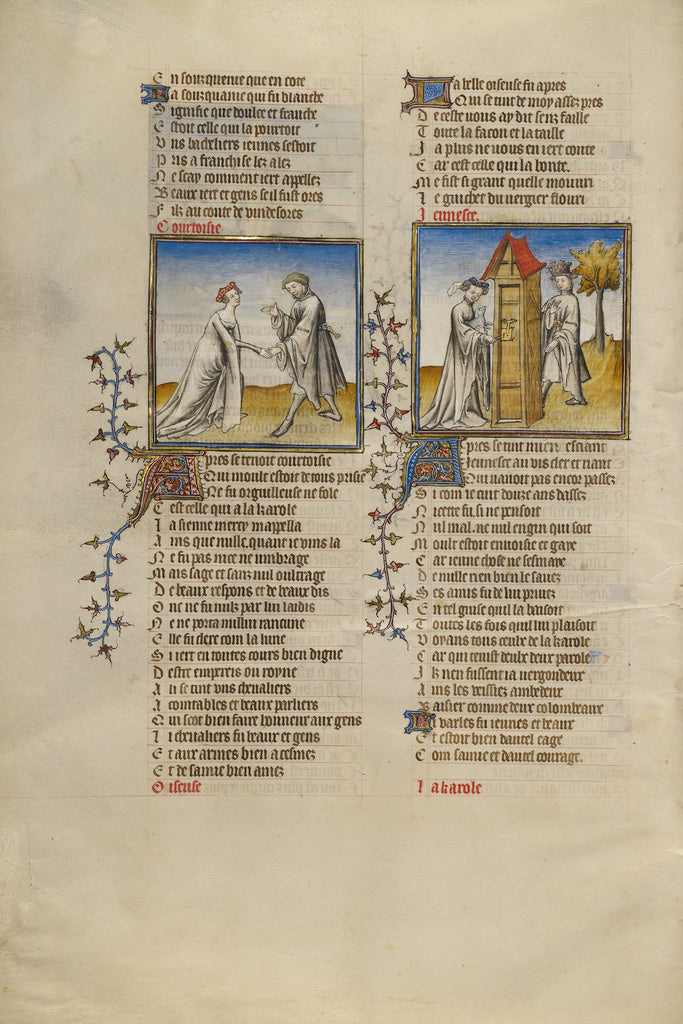 En sourquenie que en cote
La sourquanie qui fu blanche
Signifie que doulce et franche
Estoit celle qui la portoit
Uns bacheliers iennes sestoit
Pris a franchise lez a lez
Ne scay comment iert appellez
Beaux iert et gens se il fust ores
Filz au conte de vindesores
Courtoisie
Apres se tenoit courtoisie
Qui moult estoit de tous prisie
Ne fu orguilleuse ne fole
Cest celle qui a la karole
La sienne mercy mappella
Ains que nulle quant ie vins la
Ne fu pas nice ne umbrage
Mais sage et sanz nul oultrage
De beaux respons et de beaux dis
Onc ne fu nulz par lui laidis
Ne ne porta nullui rancune
Elle fu clere com la lune
Si iert en toutes cours bien digne
Destre empereis ou royne
A li se tint uns chevaliers
Acointables et beaux parliers
Qui scot bien faire honneur aux gens
Li chevaliers fu beaux et gens
Et aux armes bien acesmez
Et de samie bien amez
Oiseuse
La belle oiseuse fu apres
Qui se tint de moy assez pres
De ceste vous ay dit senz faille
Toute la facon et la taille
Ia plus ne vous en iert conte
Car cest celle qui la bonte
Me fist si grant quelle mouuri
Le guichet du vergier flouri
Ieunesce.
Apres se tint mien esciant
Ieunesce au vis cler et riant
Qui nauoit pas encor passez
Si com ie cuit douze ans dassez
Nicette fu si ne pensoit
Nul mal ne nul engin qui soit
Moult estoit enuoisie et gaye
Car ienne chose ne sesmaye
De nulle rien bien le sauez
Ses amis fu de lui priuez
En tel guise quil la baisoit
Toutes les fois quil lui plaisoit
Voyans tous ceulx de la karole
Car qui tenist deulx deux parole
Ilz nen fussent ia vergondeux
Ains les veissiez ambedeux
Baisier comme deux colombeaux
Li varles fu iennes et beaux
Et estoit bien dautel eage
Com samie et dautel courage.
La karole